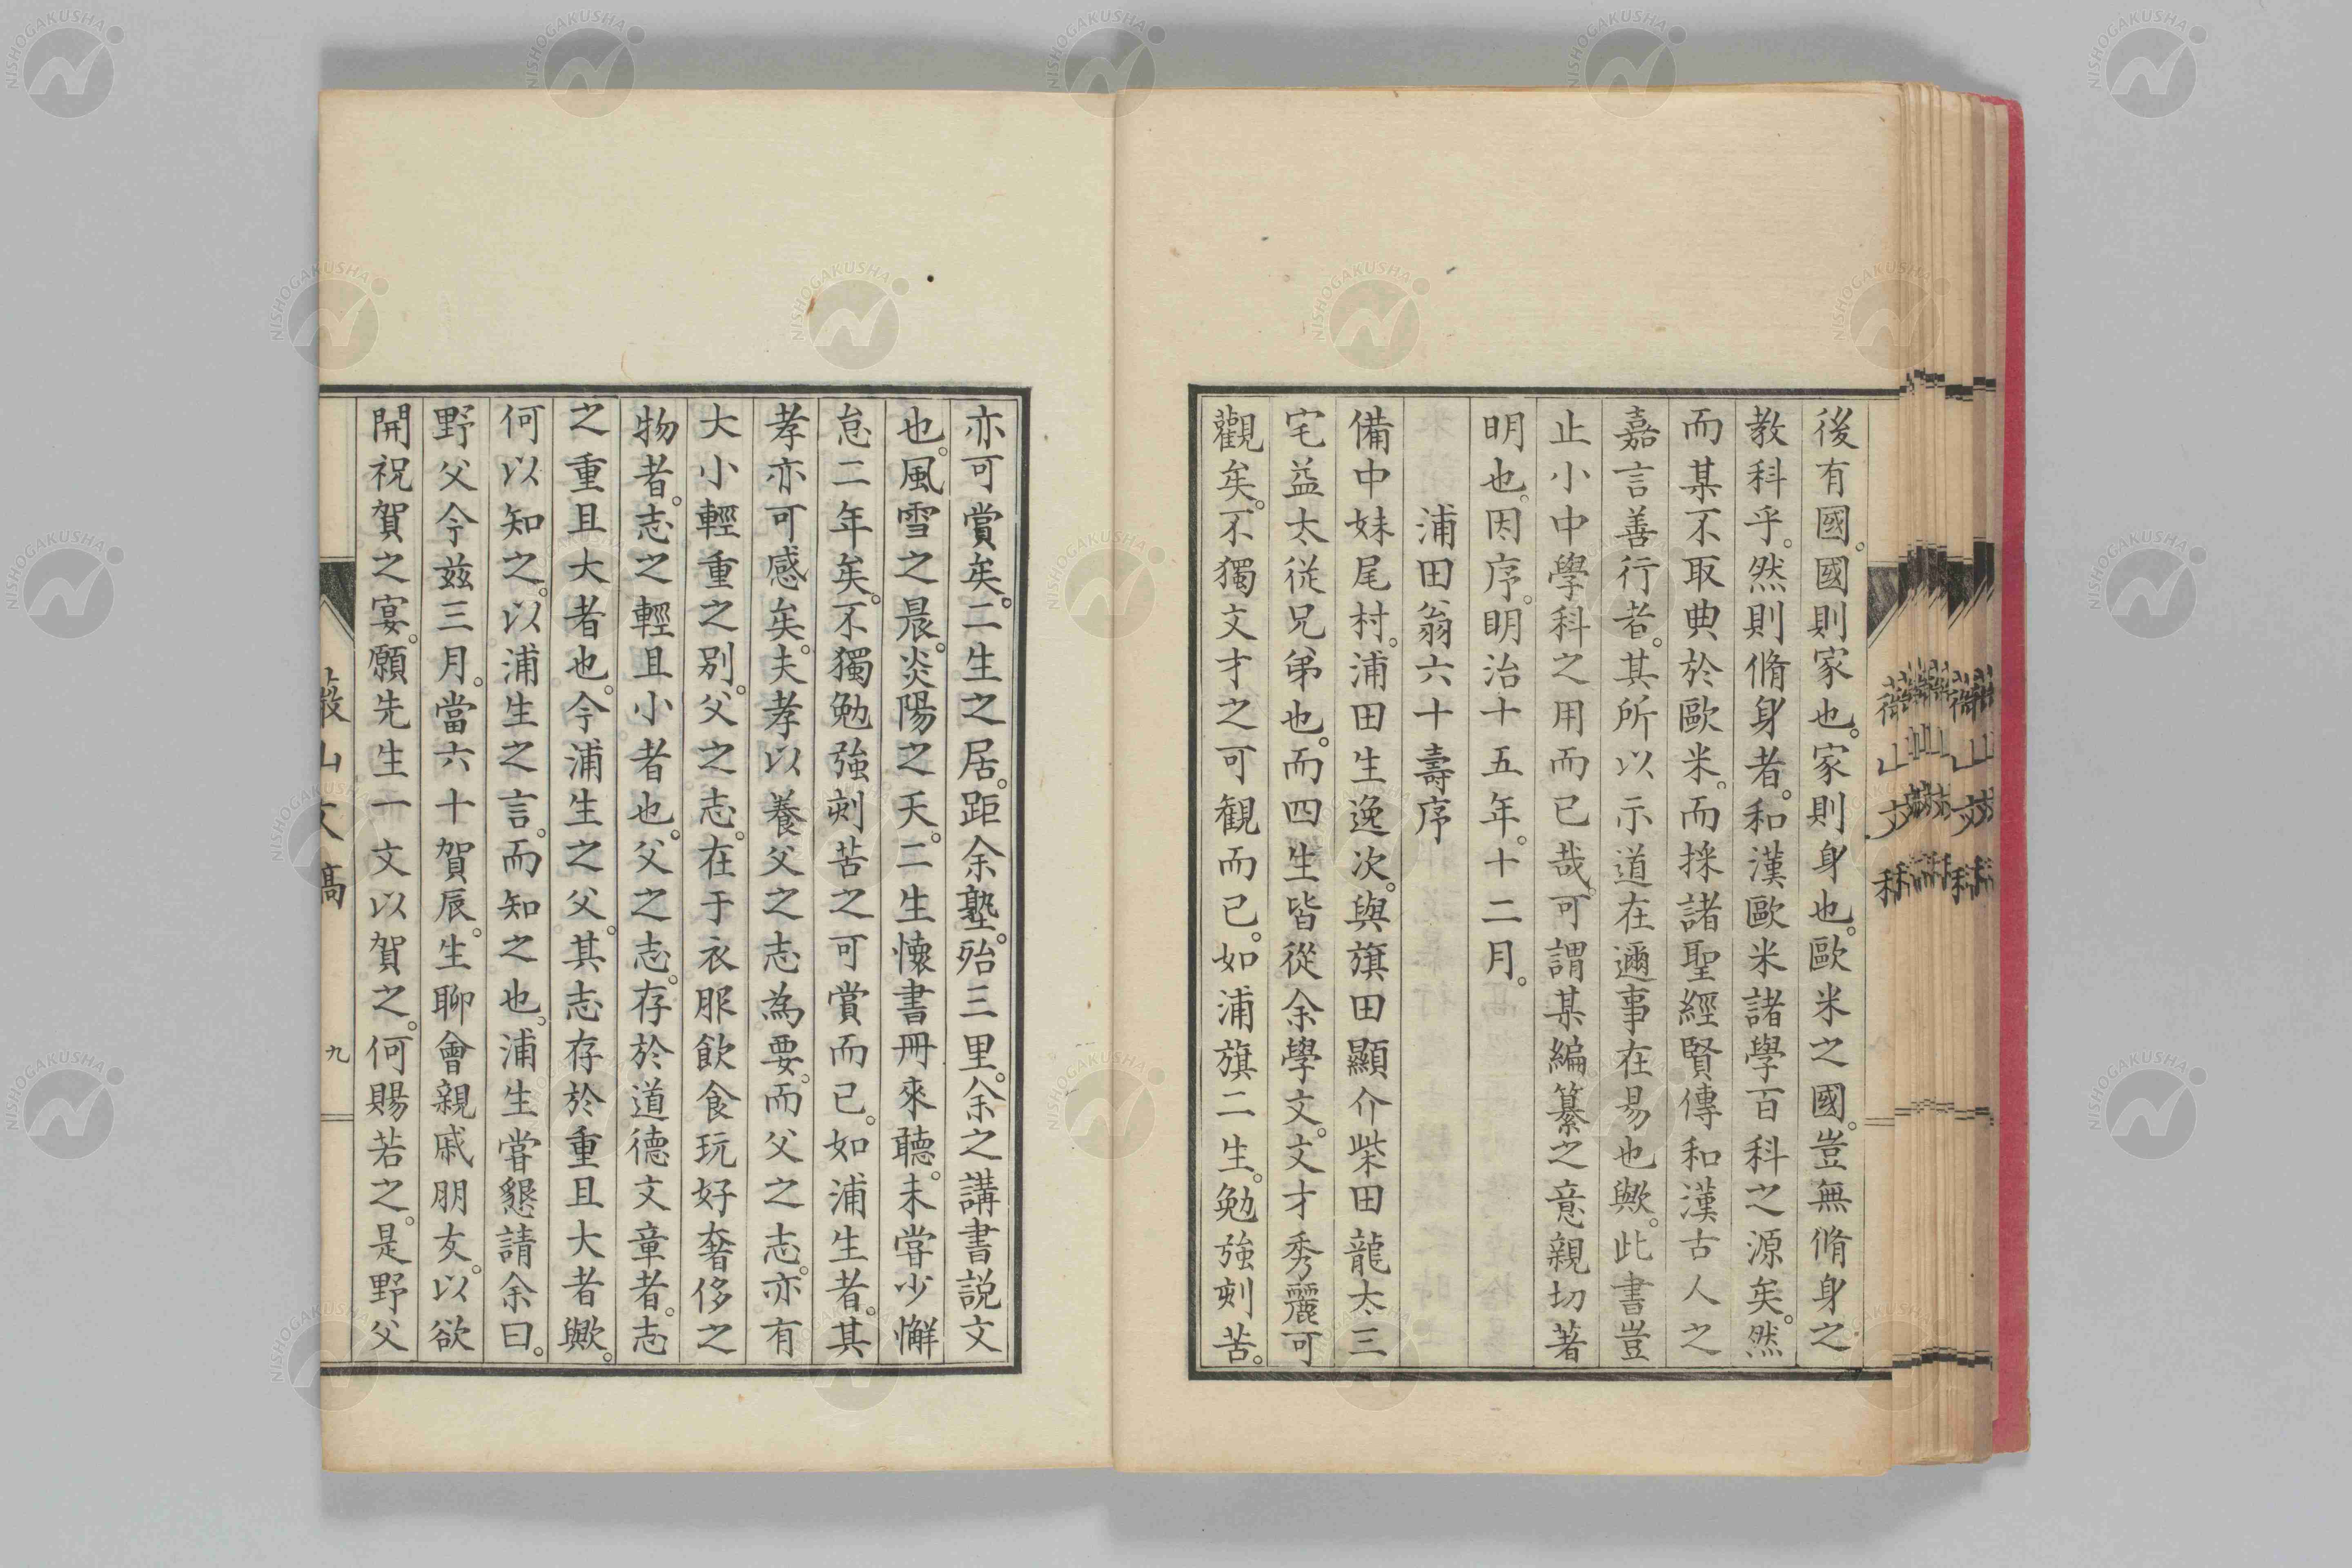 後有國。國則家也。家則身也。歐米之國。豈無脩身之
教科乎。然則脩身者。和漢歐米諸學百科之源矣。然
而某不取典於歐米。而採諸聖經賢傳和漢古人之
嘉言善行者。其所以示道在邇事在易也歟。此書豈
止小中學科之用而已哉。可謂某編纂之意親切著
明也。因序。明治十五年。十二月。
浦田翁六十壽序
備中妹尾村。浦田生逸次。與旗田顯介柴田龍太三
宅益太從兄弟也。而四生皆從余學文。文才秀麗可
觀矣。不獨文才之可観而已。如浦旗二生。勉強刻苦。
亦可賞矣。二生之居。距余塾。殆三里。余之講書説文
也。風雪之晨。炎陽之天。二生懷書冊來聽。未嘗少懈
怠二年矣。不獨勉強刻苦之可賞而已。如浦生者。其
孝亦可感矣。夫孝以養父之志為要。而父之志。亦有
大小輕重之別。父之志。在于衣服飲食玩好奢侈之
物者。志之輕且小者也。父之志。存於道德文章者。志
之重且大者也。今浦生之父。其志存於重且大者歟。
何以知之。以浦生之言。而知之也。浦生嘗懇請余曰。
野父今茲三月。當六十賀辰。生聊會親戚朋友。以欲
開祝賀之宴。願先生一文以賀之。何賜若之。是野父
山文稿
九
NISHOGAKUSHA